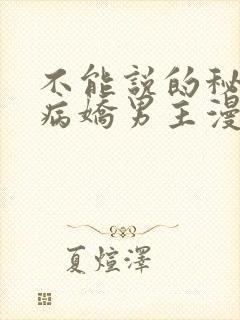 不能説的秘
病嬌男主漫
夏煊澤